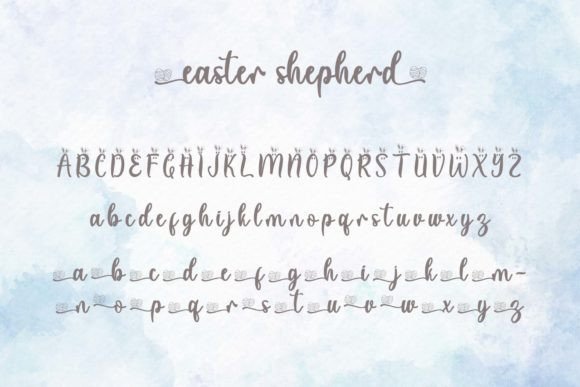 easter shepherd
ABCDEFGHIJKLMNOPQRSTUVWXYZ
abcdefghijklmnopqrstuvwxyz
a b c d e f g h i j k l m-
n o p q r s t u v w x y z